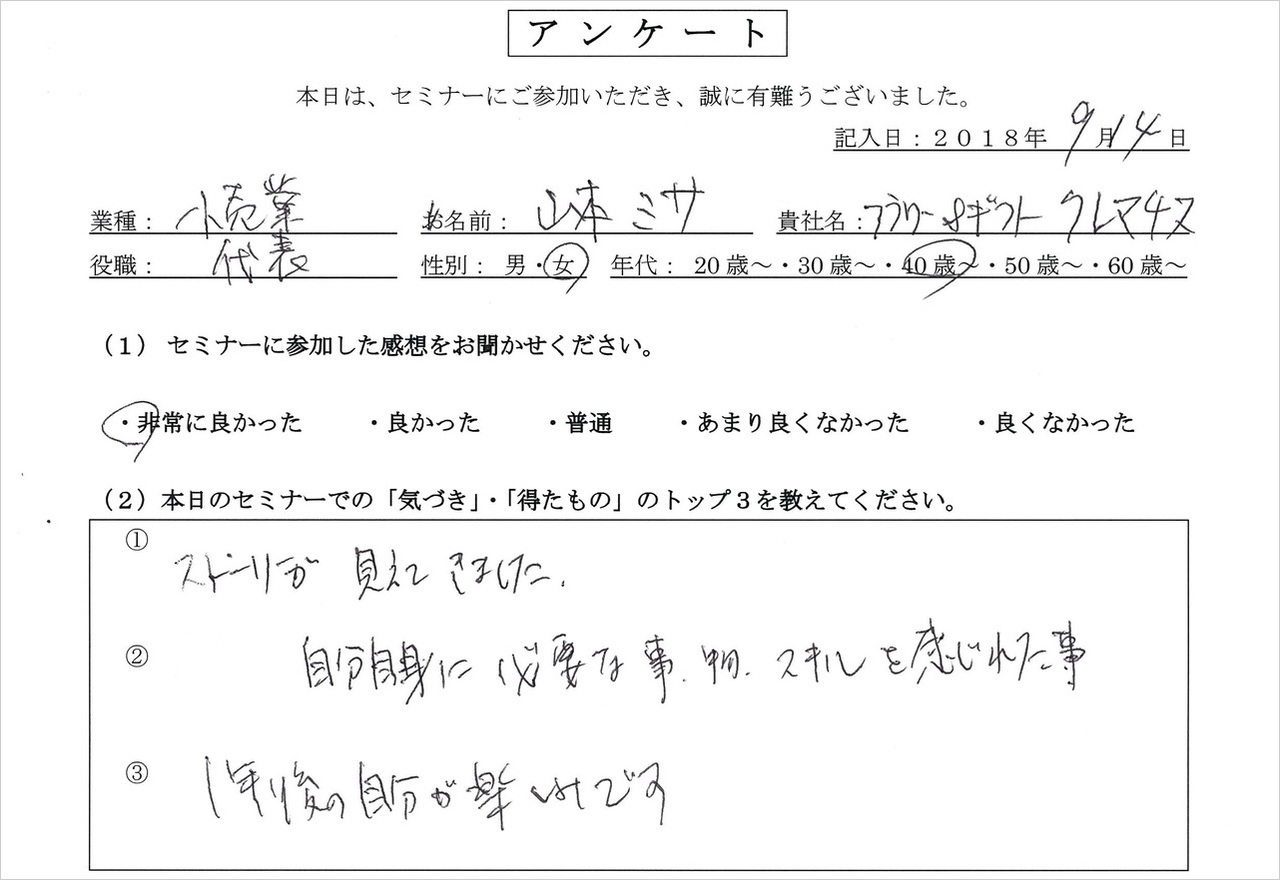 アンケート
本日は、セミナーにご参加いただき、誠に有難うございました。
記入日：２０１８年 9月14日
業種： 小売業 お名前： 山本 ミサ 貴社名：フラワー&ギフト クレマチス
役職： 代表 性別： 男・女 年代： 20歳～・30歳～・40歳～・50歳～・60歳～
（１） セミナーに参加した感想をお聞かせください。
・非常に良かった ・良かった ・普通 ・あまり良くなかった ・良くなかった
（２）本日のセミナーでの「気づき」・「得たもの」のトップ３を教えてください。
① ストーリーが 見えて きました.
② 自分自身に 必要な事. スキルを感じれた事
③ 1年後の自分が楽しみです